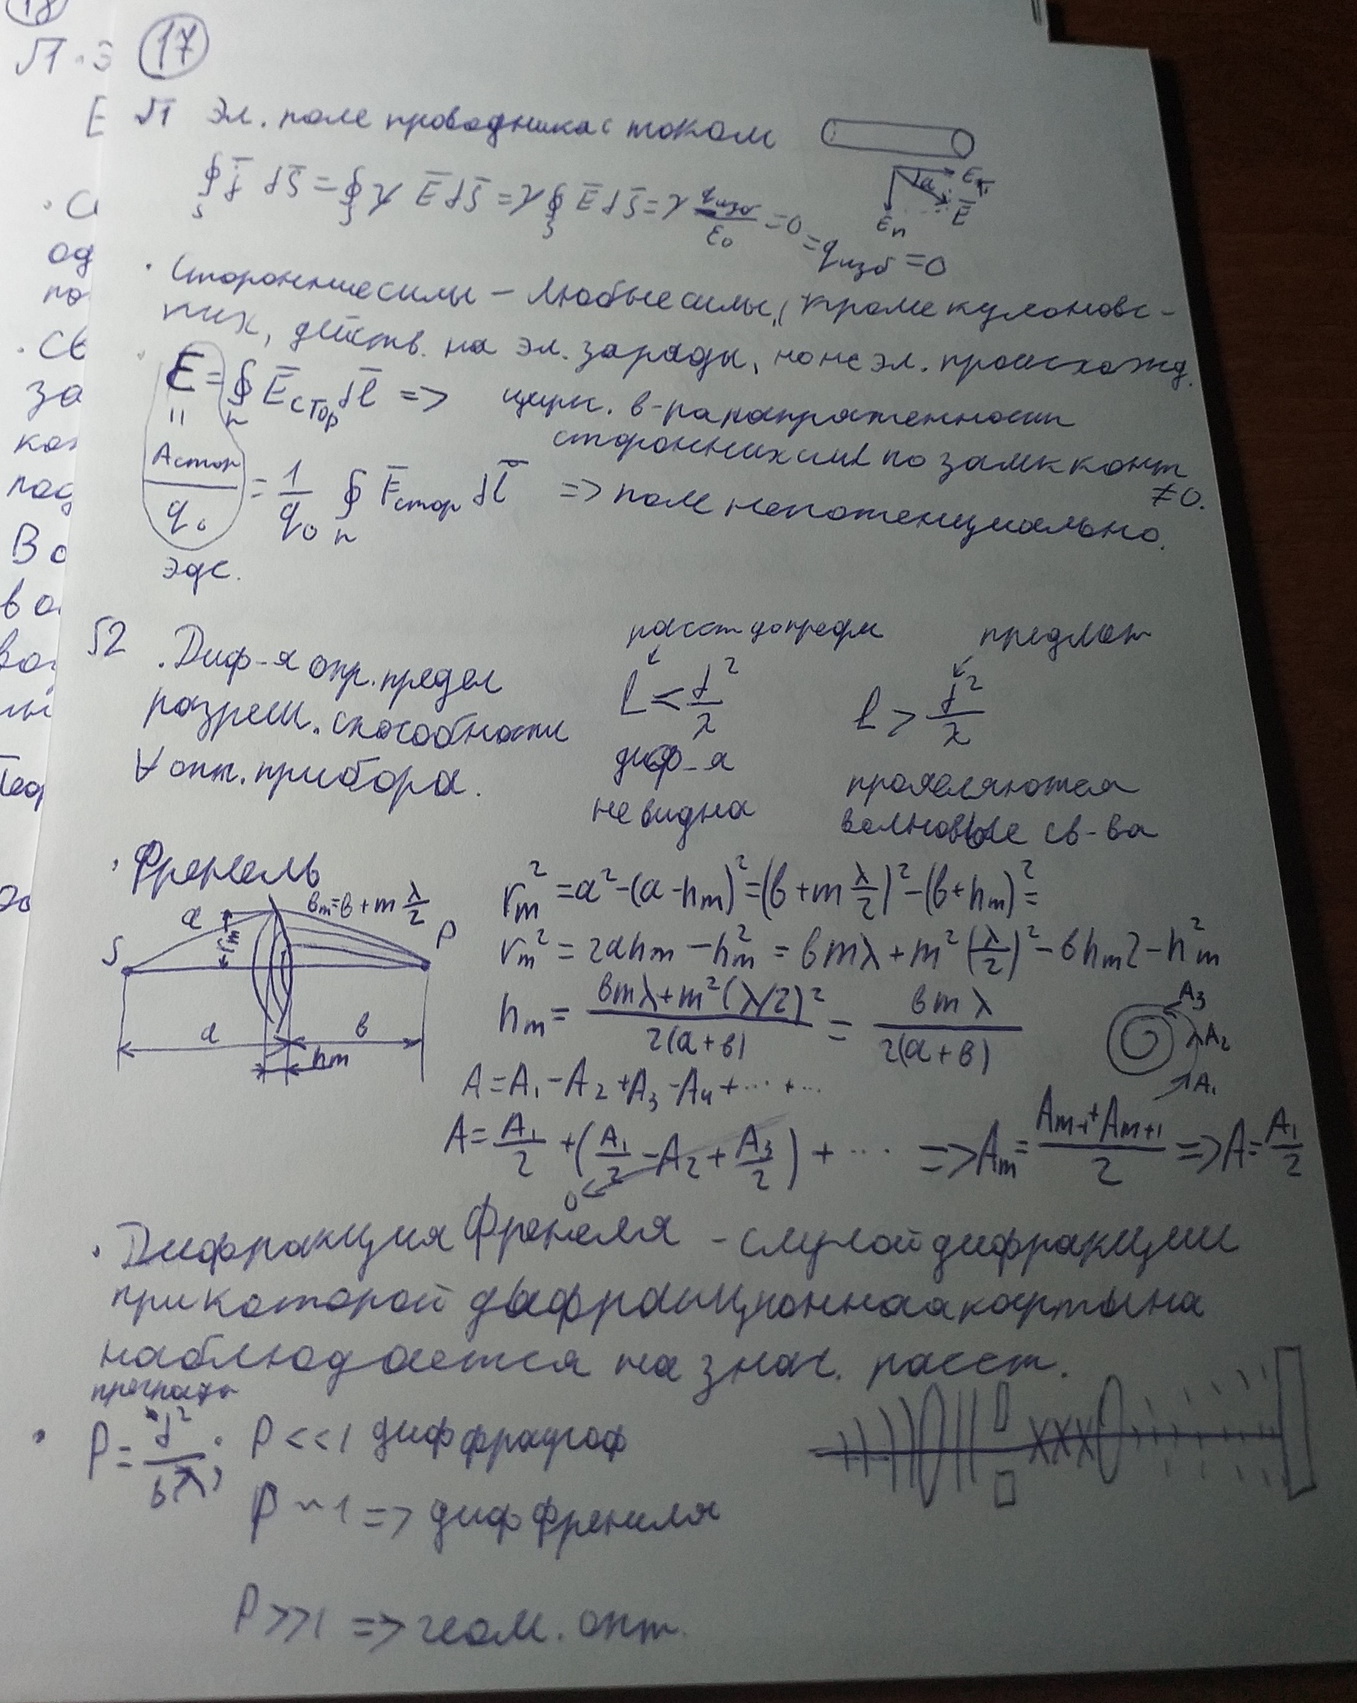 17
√1 Эл. поле проводника с током
∮ j̄ dS̄ = ∮ γ Ē dS̄ = γ ∮ Ē dS̄ = γ qизб/ε₀ = 0 = qизб = 0
S S S
Eτ
α
Ē
Eп
· Сторонние силы – любые силы, кроме кулоновс-
ких, действ. на эл. заряды, но не эл. происхожд.
· Ɛ = ∮ Ēстор dl̄ => цирк. в-ра напряженности
сторонних сил по замк конт
≠ 0.
Aстор/q₀ = 1/q₀ ∮ F̄стор dl̄ => поле непотенциально.
эдс.
√2 . Диф-я опр. предел
разреш. способности
∀ опт. прибора.
расст до прегр
L < d²/λ
диф-я
не видна
l > d²/λ
проявляются
волновые св-ва
· Френель
S
a
rm
bm = b + m λ/2
P
a
b
hm
rm² = a² – (a – hm)² = (b + m λ/2)² – (b + hm)² =
rm² = 2ahm – hm² = bmλ + m² (λ/2)² – bhm2 – hm²
hm = bmλ + m²(λ/2)² / 2(a+b) = bmλ / 2(a+b)
A₃
A₂
A₁
A = A₁ – A₂ + A₃ – A₄ + ··· + ...
A = A₁/2 + (A₁/2 – A₂ + A₃/2) + ··· => Am = Am-1 + Am+1 / 2 => A = A₁/2
0
· Дифракция Френеля – случай дифракции
при которой дифракционная картына
наблюдается на знач. расст.
преграды
· P = d²/bλ; P << 1 диф фраугоф
P ~ 1 => диф френеля
P >> 1 => геом. опт.